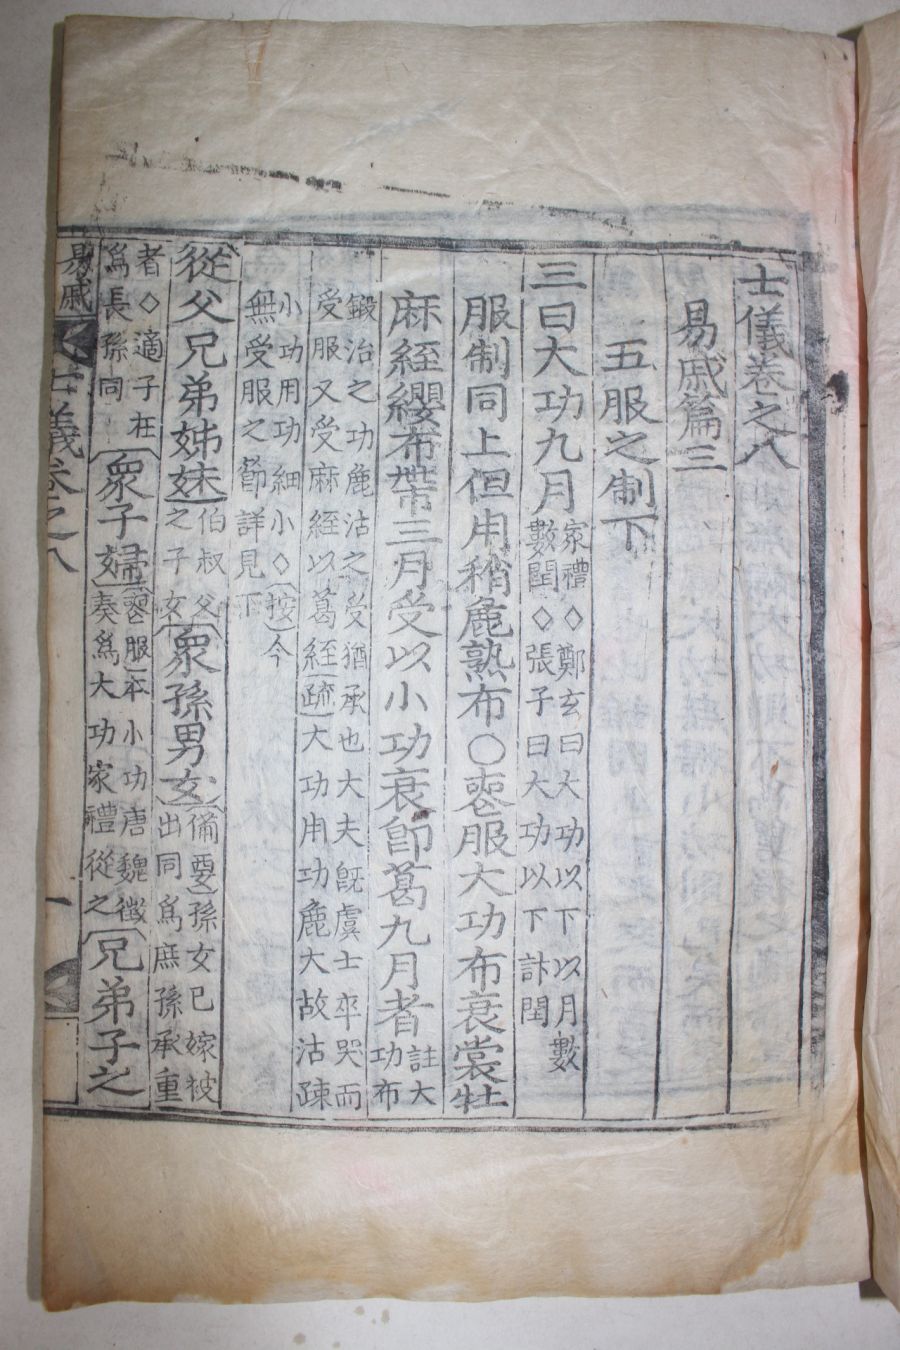 士儀卷之八
易戚篇三
五服之制下
三曰大功九月
家禮◇鄭玄曰大功以下以月數
數閏◇張子曰大功以下計閏
服制同上但用稍麁熟布○喪服大功布衰裳牡
麻絰纓布帶三月受以小功衰卽葛九月者
註大
功布
鍛治之功麁沽之受猶承也大夫旣虞士卒哭而
受服又受麻絰以葛絰疏大功用功麁大故沽疎
小功用功細小◇按今
無受服之節詳見下
從父兄弟姊妹
伯叔父
之子女
衆孫男女
備要孫女已嫁被
出同爲庶孫承重
者◇適子在
爲長孫同
衆子婦
喪服本小功唐魏徵
奏爲大功家禮從之
兄弟子之
易戚 士儀卷之八 一